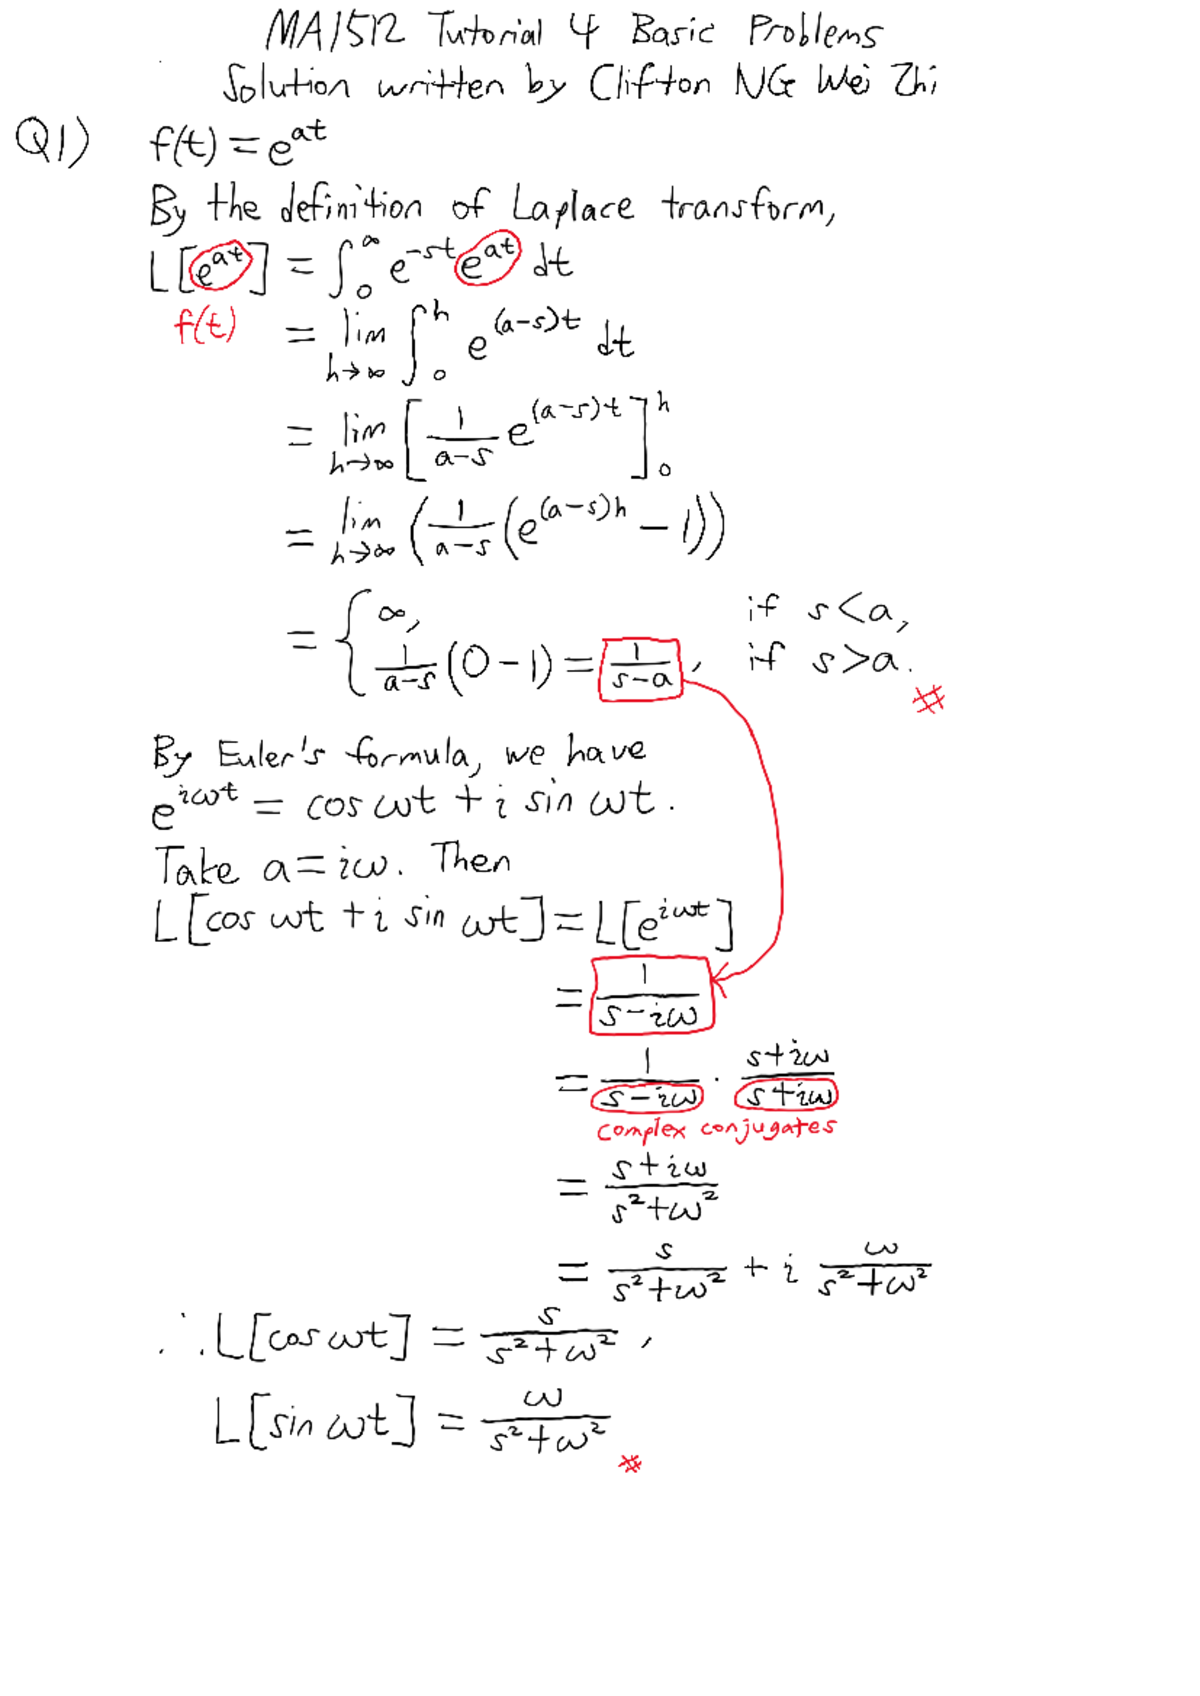 MA1512 Tutorial 4 Basic Problems
Solution written by Clifton NG Wei Zhi
Q1) f(t) = e^{at}
By the definition of Laplace transform,
L[e^{at}] = ∫_0^∞ e^{-st} e^{at} dt
f(t) = lim_{h→∞} ∫_0^h e^{(a-s)t} dt
= lim_{h→∞} [1/(a-s) e^{(a-s)t}]_0^h
= lim_{h→∞} (1/(a-s) (e^{(a-s)h} - 1))
= { ∞, if s<a,
1/(a-s) (0-1) = 1/(s-a), if s>a. #
By Euler's formula, we have
e^{iωt} = cos ωt + i sin ωt.
Take a = iω. Then
L[cos ωt + i sin ωt] = L[e^{iωt}]
= 1/(s-iω)
= 1/(s-iω) · (s+iω)/(s+iω)
complex conjugates
= (s+iω)/(s²+ω²)
= s/(s²+ω²) + i ω/(s²+ω²)
∴ L[cos ωt] = s/(s²+ω²),
L[sin ωt] = ω/(s²+ω²) #